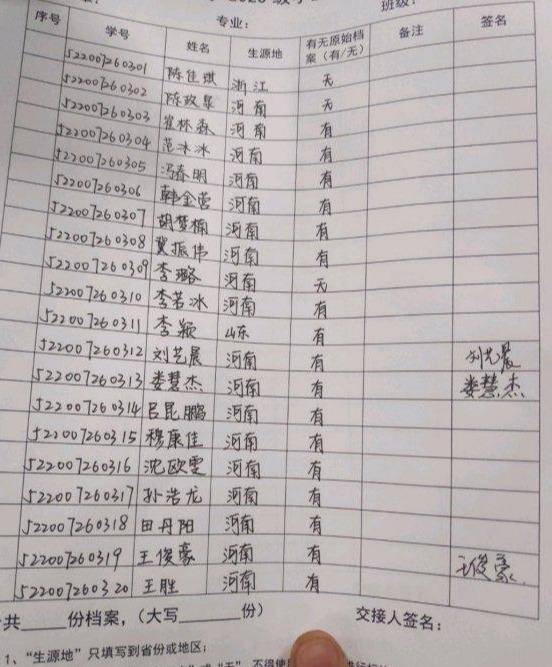 专业： 班级：
序号 学号 姓名 生源地 有无原始档案（有/无） 备注 签名
522007260301 陈佳琪 浙江 无
522007260302 陈政昊 河南 无
522007260303 崔林森 河南 有
522007260304 范冰冰 河南 有
522007260305 冯春明 河南 有
522007260306 韩金萱 河南 有
522007260307 胡梦楠 河南 有
522007260308 冀振伟 河南 有
522007260309 李璐 河南 无
522007260310 李若冰 河南 有
522007260311 李颖 山东 有
522007260312 刘艺晨 河南 有 刘艺晨
522007260313 娄慧杰 河南 有 娄慧杰
522007260314 吕昆鹏 河南 有
522007260315 穆康佳 河南 有
522007260316 沈欧雯 河南 有
522007260317 孙浩龙 河南 有
522007260318 田丹阳 河南 有
522007260319 王俊豪 河南 有 王俊豪
522007260320 王胜 河南 有
共______份档案，（大写______份） 交接人签名：
1、“生源地”只填写到省份或地区；